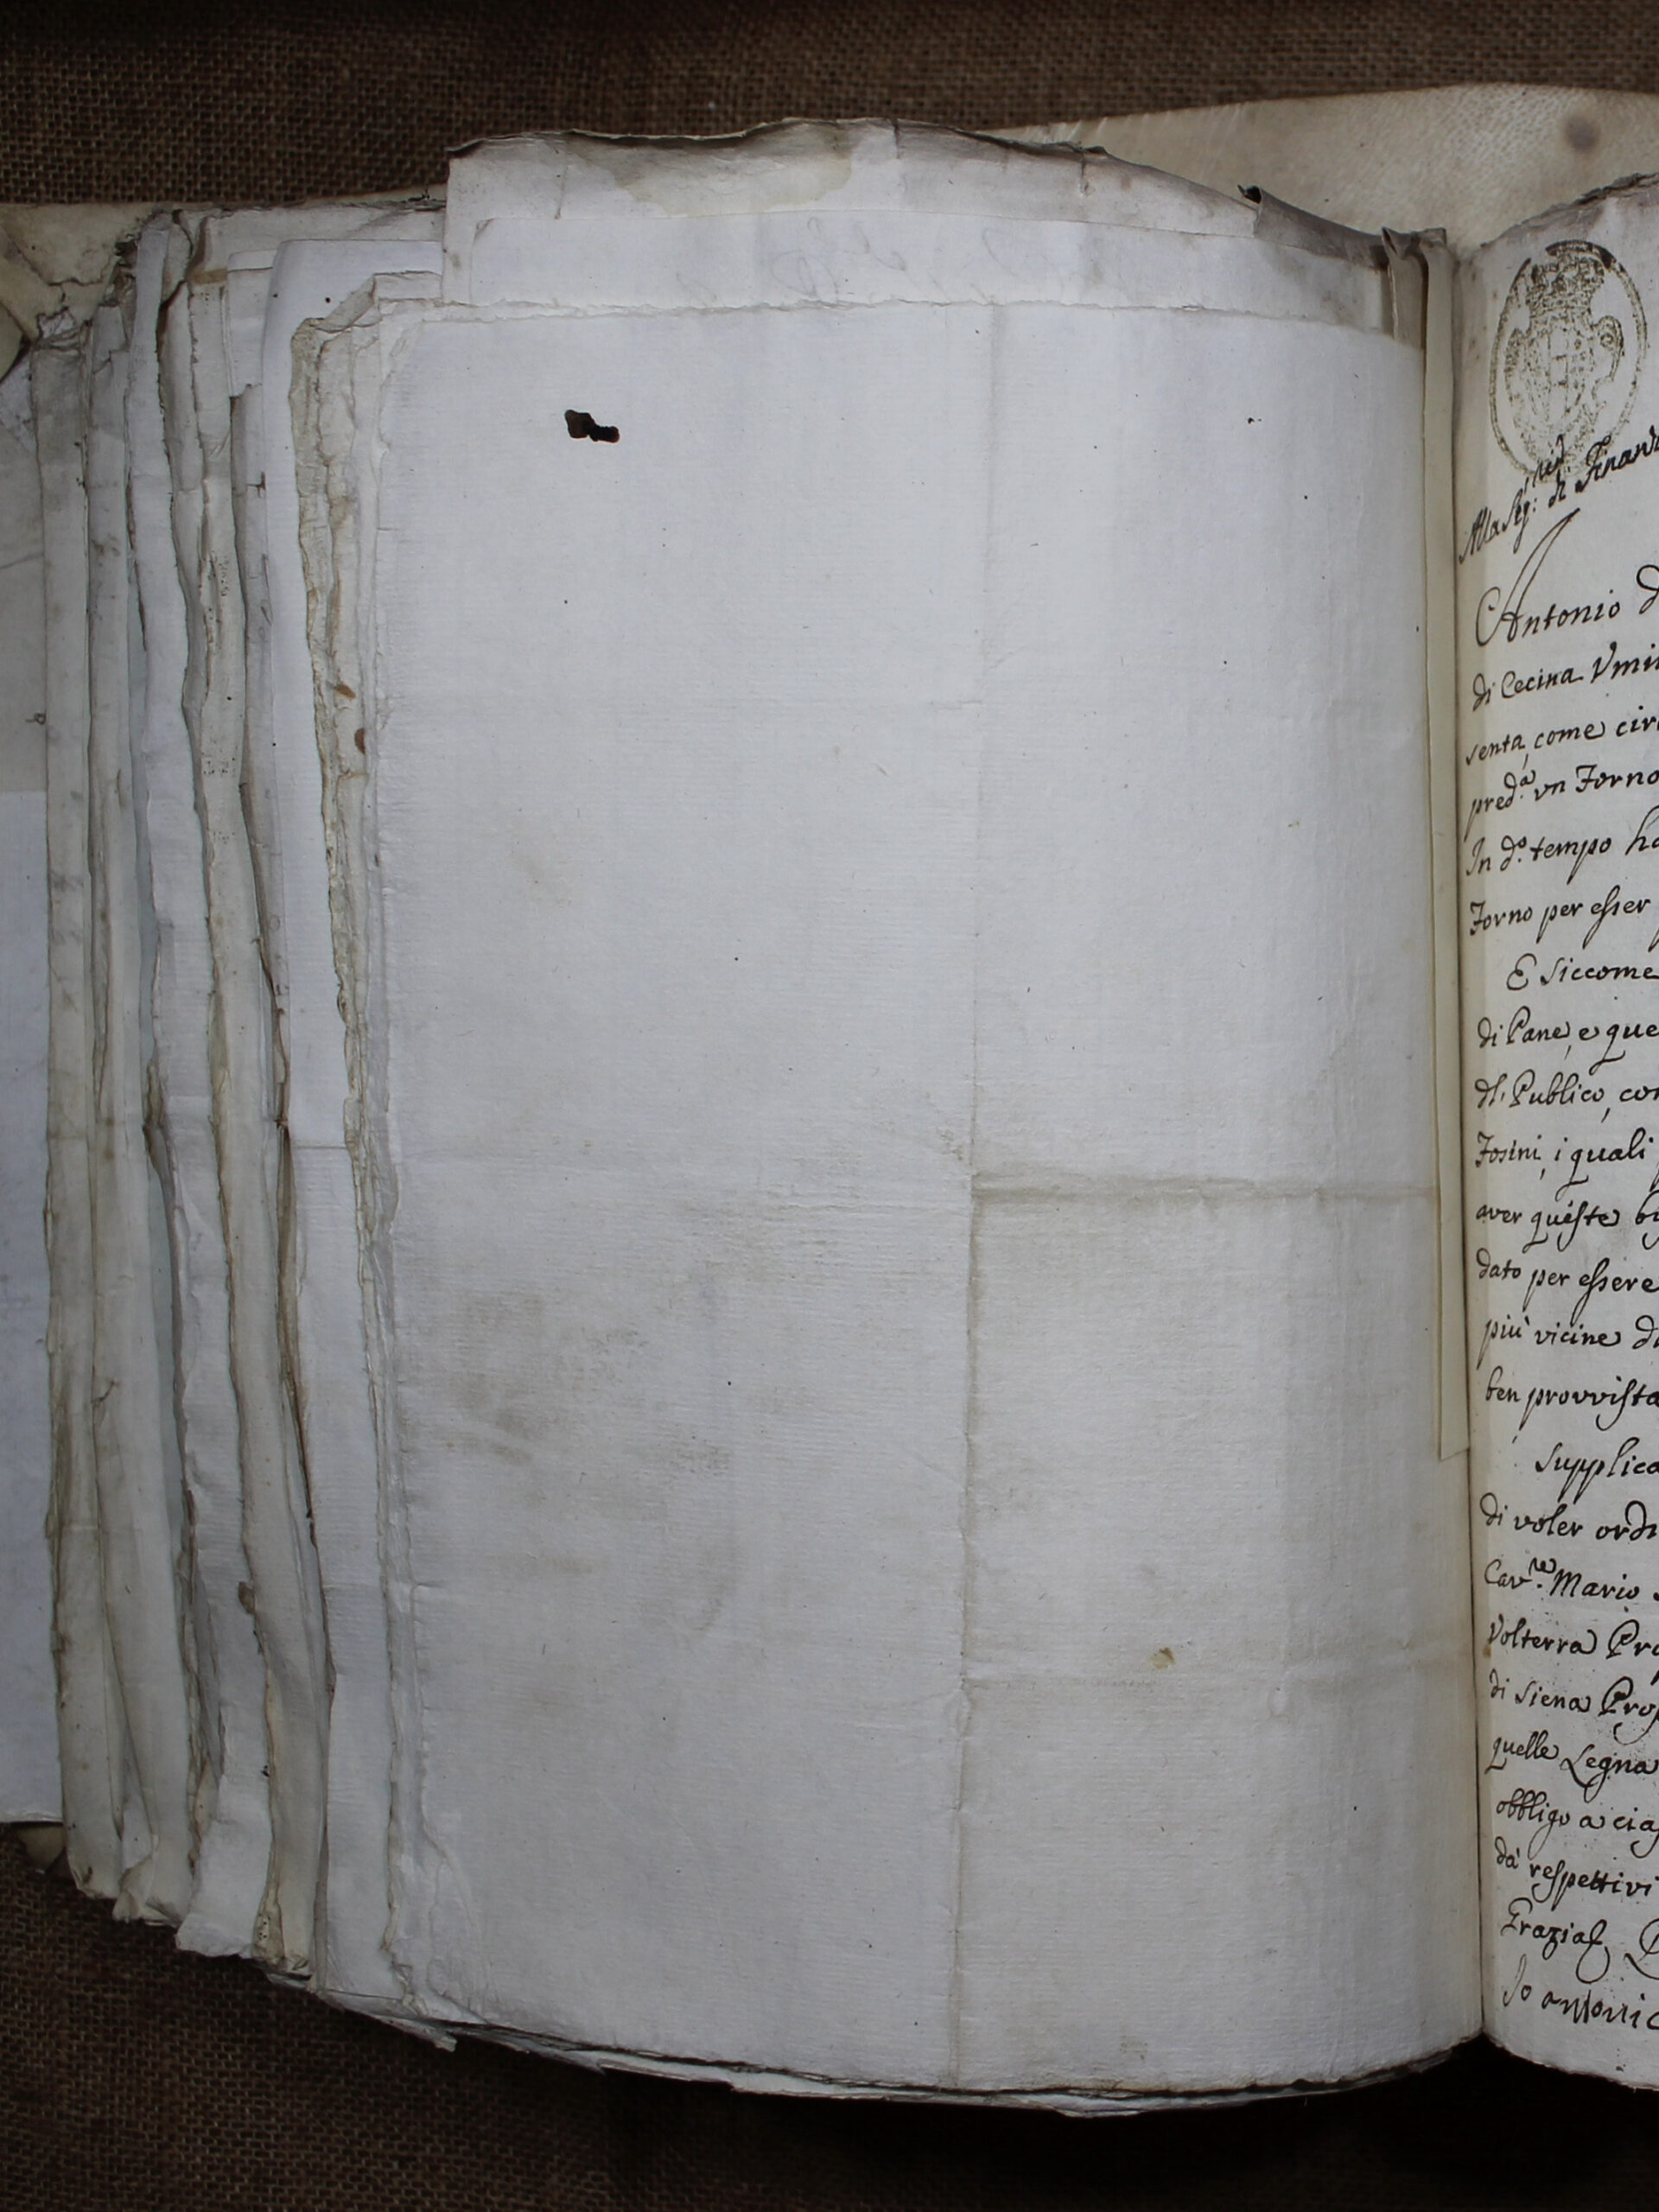 Alla Seg: di Finan
Antonio D
di Cecina Vmi
senta, come cir
pred.ª vn Forno
In d.º tempo ha
Forno per esser
E siccome
di Pane, e que
dl. Publico, con
Fosini, i quali
aver queste
dato per essere
più vicine d
ben provvista
Supplica
di voler ord
Cav.re Mario
Volterra Pro
di Siena Prop
quelle Legna
obbligo a cia
da respettivi
Grazia
Io antonio